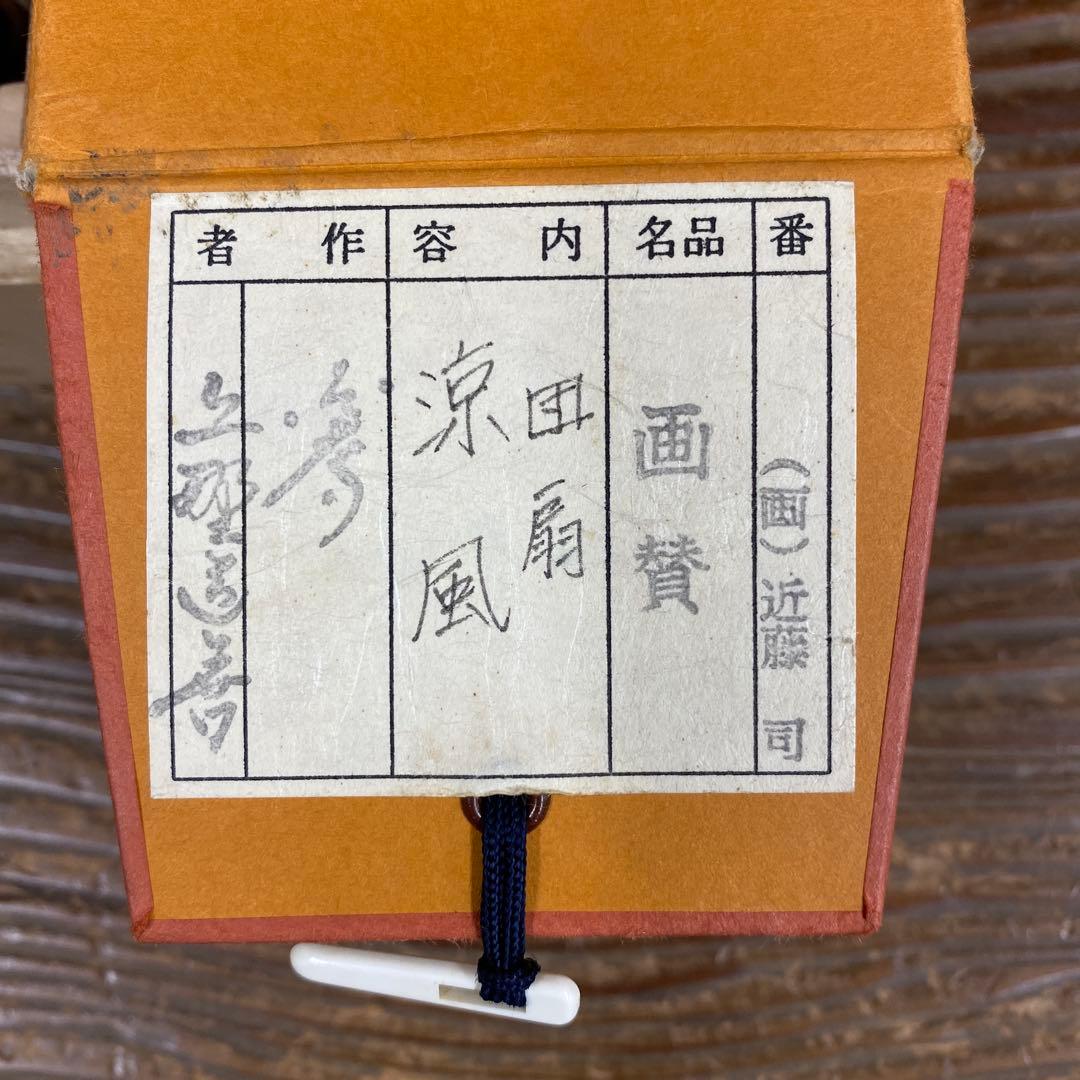 番
品名
内容
作者
（画）近藤 司
画賛
団扇
涼風
上野道善